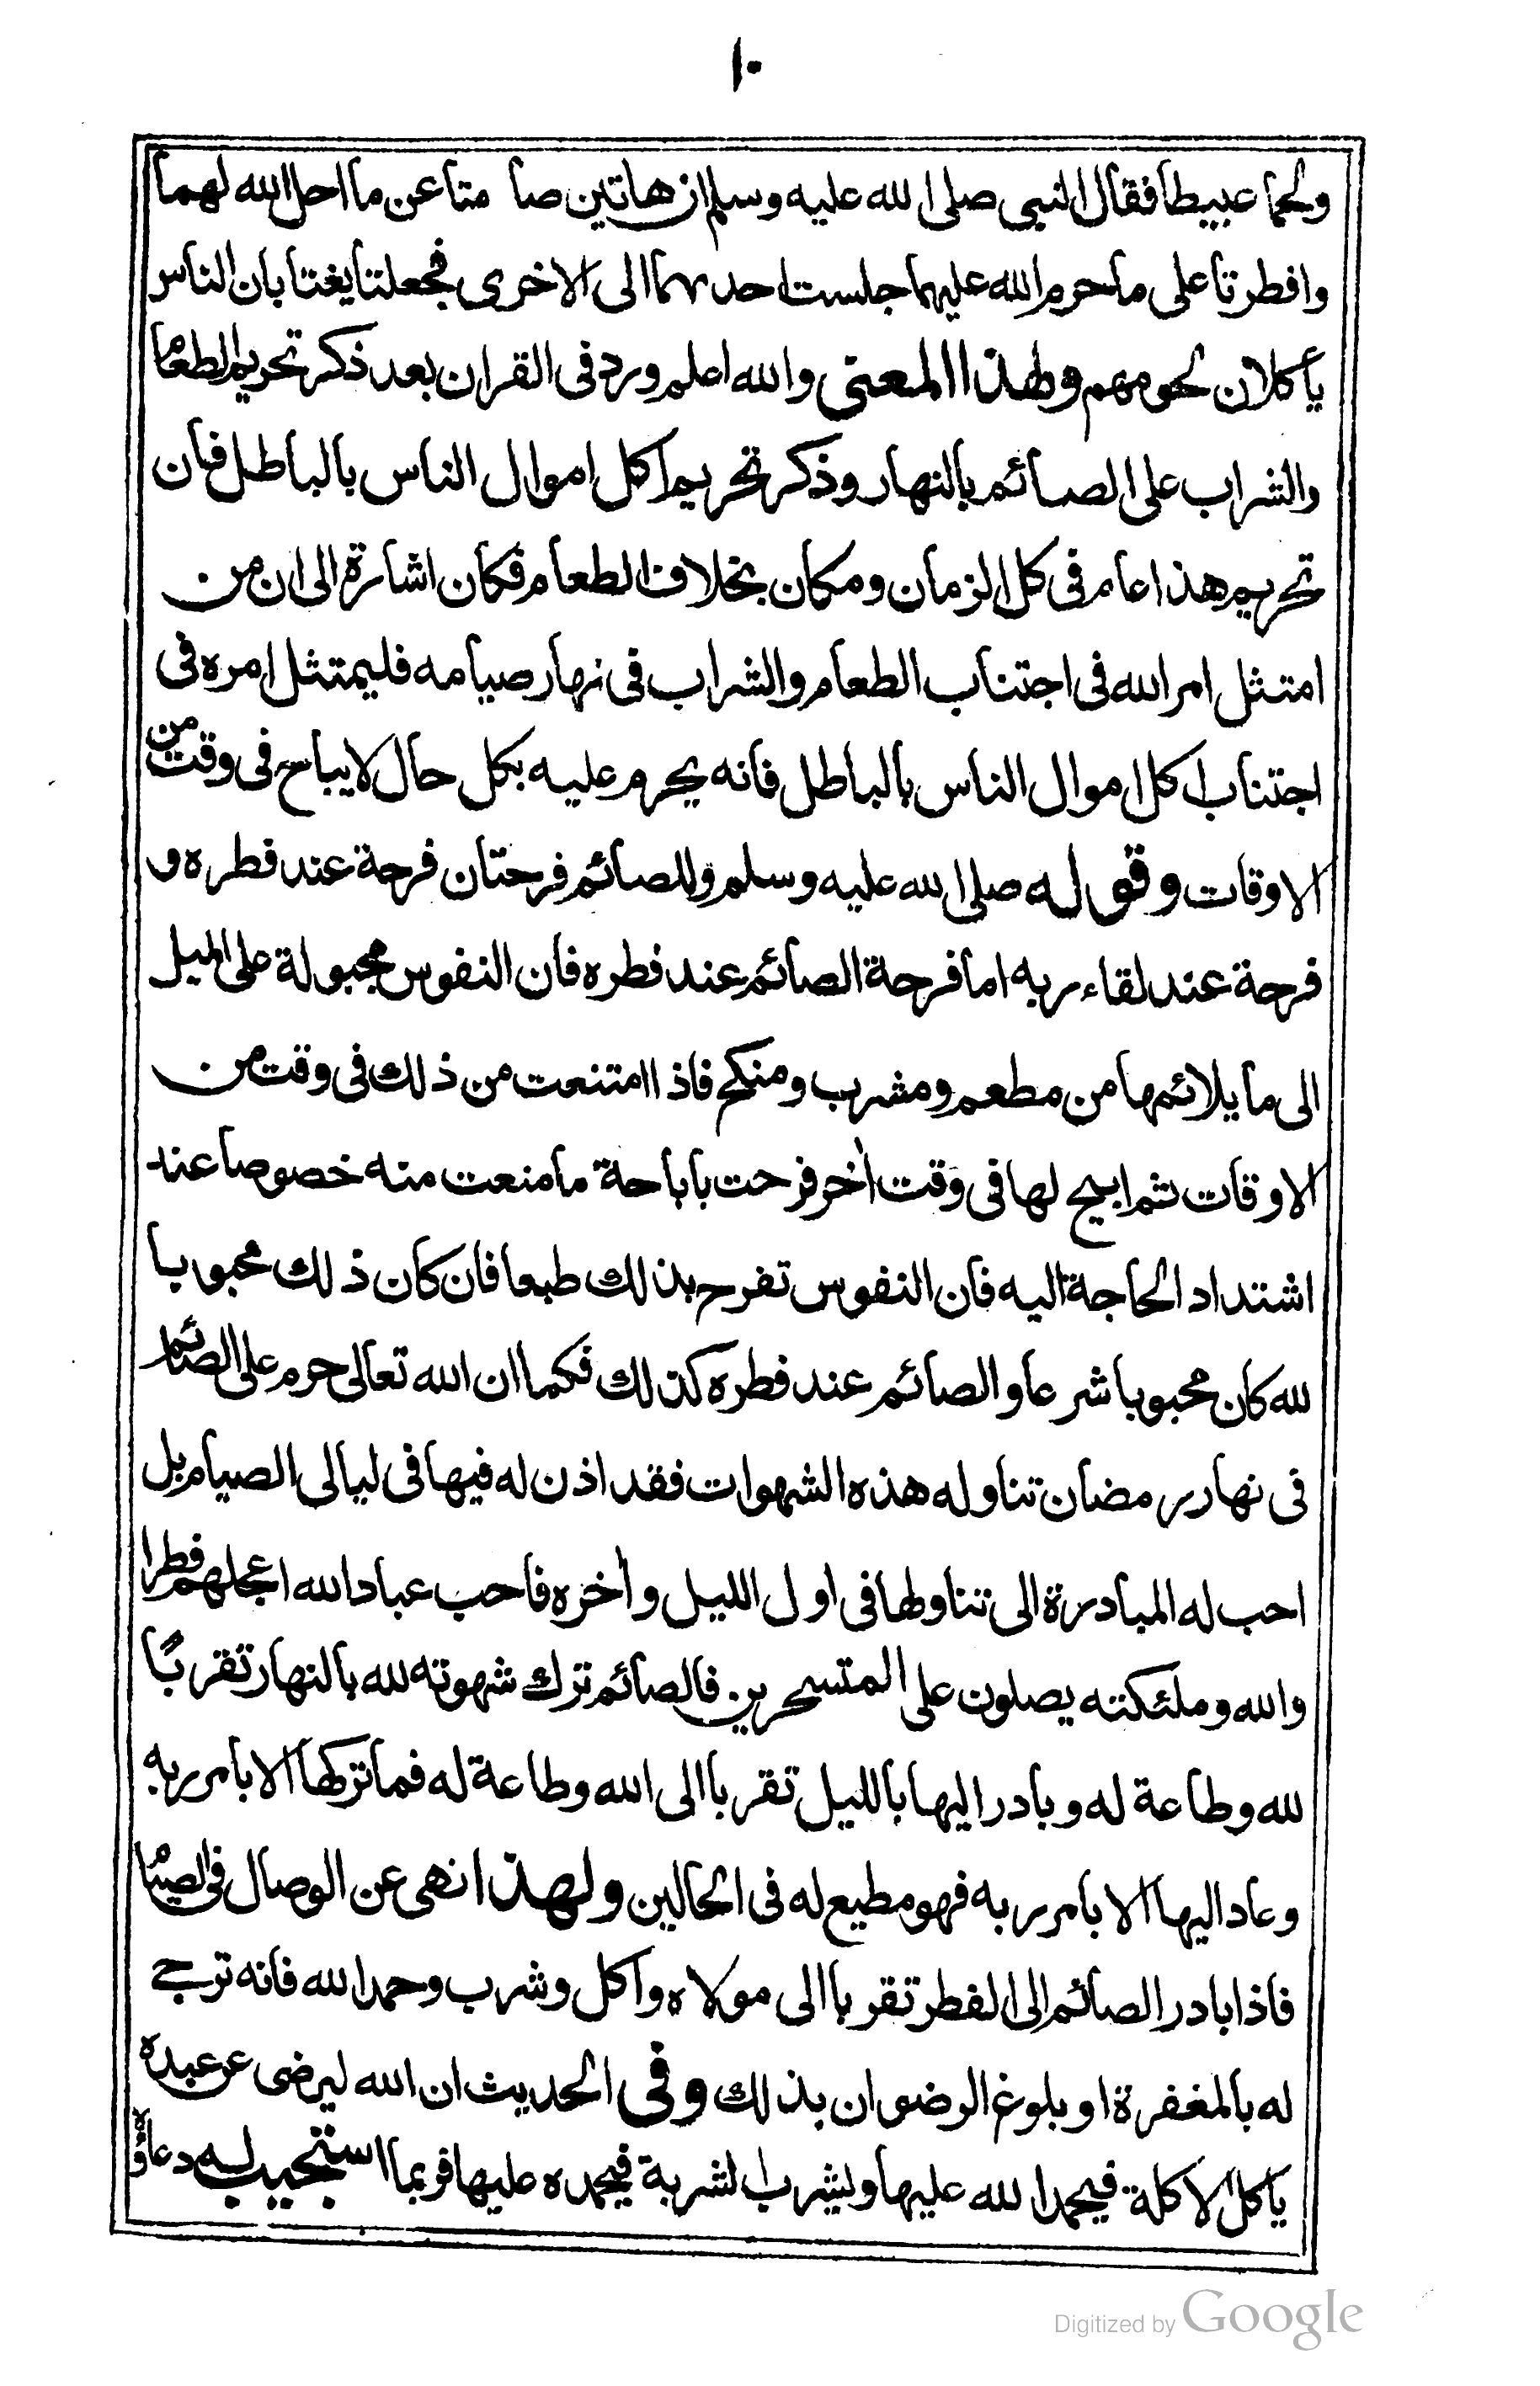 ١٠
ولحما عبيطا فقال النبي صلى الله عليه وسلم ان هاتين صا متا عن ما احل الله لهما
وافطرتا على ما حرم الله عليهما جلست احدهما الى الاخرى فجعلتا يغتابان الناس
يأكلان لحومهم ولهذا المعنى والله اعلم ورد فى القران بعد ذكر تحريم الطعام
والشراب على الصائم بالنهار وذكر تحريم اكل اموال الناس بالباطل فان
تحريم هذا عام فى كل الزمان ومكان بخلاف الطعام فكان اشارة الى ان من
امتثل امر الله فى اجتناب الطعام والشراب فى نهار صيامه فليمتثل امره فى
اجتناب اكل اموال الناس بالباطل فانه يحرم عليه بكل حال لا يباح فى وقت من
الاوقات وقوله صلى الله عليه وسلم وللصائم فرحتان فرحة عند فطره و
فرحة عند لقاء ربه اما فرحة الصائم عند فطره فان النفوس مجبولة على الميل
الى ما يلائمها من مطعم ومشرب ومنكح فاذا امتنعت من ذلك فى وقت من
الاوقات ثم ابيح لها فى وقت اخر فرحت باباحة ما منعت منه خصوصا عند
اشتداد الحاجة اليه فان النفوس تفرح بذلك طبعا فان كان ذلك محبوبا
لله كان محبوبا شرعا والصائم عند فطره كذلك فكما ان الله تعالى حرم على الصائم
فى نهار رمضان تناوله هذه الشهوات فقد اذن له فيها فى ليالى الصيام بل
احب له المبادرة الى تناولها فى اول الليل واخره فاحب عباد الله اعجلهم فطرا
والله وملئكته يصلون على المتسحرين فالصائم ترك شهوته لله بالنهار تقربًا
لله وطاعة له وبادر اليها بالليل تقربا الى الله وطاعة له فما تركها الا بامر ربه
وعاد اليها الا بامر ربه فهو مطيع له فى الحالين ولهذا نهى عن الوصال فى الصيام
فاذا بادر الصائم الى الفطر تقربا الى مولاه واكل وشرب وحمد الله فانه ترجى
له بالمغفرة او بلوغ الرضوان بذلك وفى الحديث ان الله ليرضى عن عبده
ياكل الاكلة فيحمد الله عليها ويشرب الشربة فيحمده عليها فربما استجيب له دعاؤه
Digitized by Google